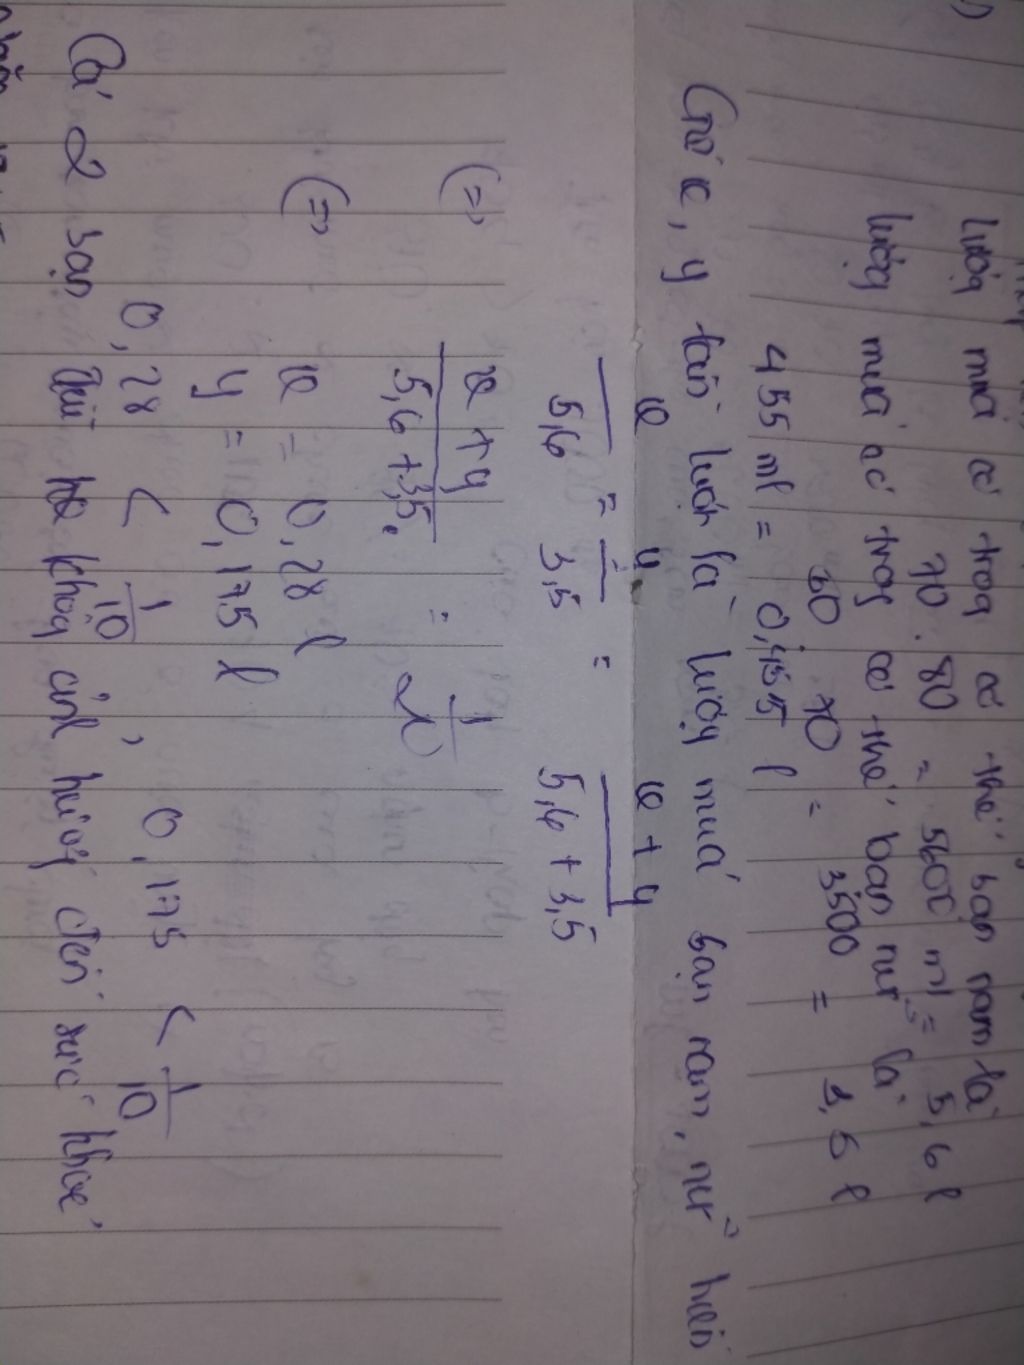 lượg máu có trog cơ thể bạn nam là
70 . 80 = 5600 ml = 5,6 l
lượg máu có trog cơ thể bạn nữ là
50 . 70 = 3500 = 3,5 l
455 ml = 0,455 l
Gọi x, y lần lượt là lượg máu bạn nam, nữ hiến
x / 5,6 = y / 3,5 = x + y / 5,6 + 3,5
(=) x + y / 5,6 + 3,5 = 1 / 20
(=) x = 0,28 l
y = 0,175 l
0,28 < 1/10 , 0,175 < 1/10
Cả 2 bạn đều k khôg ảnh hưởg đến sức khoẻ